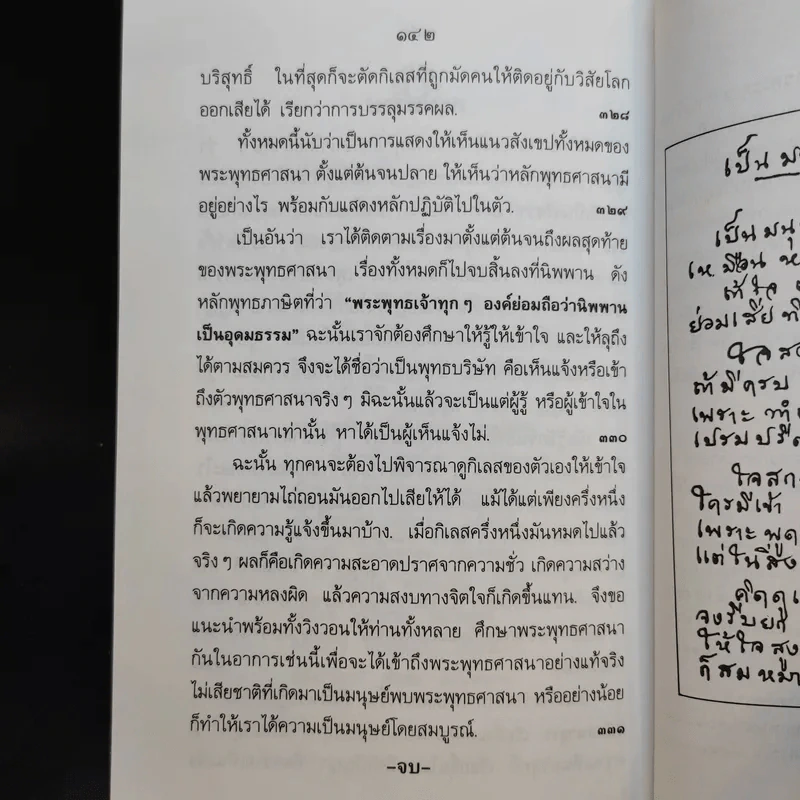 ๑๔๒
บริสุทธิ์ ในที่สุดก็จะตัดกิเลสที่ถูกมัดคนให้ติดอยู่กับวิสัยโลก
ออกเสียได้ เรียกว่าการบรรลุมรรคผล. ๓๒๘
ทั้งหมดนี้นับว่าเป็นการแสดงให้เห็นแนวสังเขปทั้งหมดของ
พระพุทธศาสนา ตั้งแต่ต้นจนปลาย ให้เห็นว่าหลักพุทธศาสนามี
อยู่อย่างไร พร้อมกับแสดงหลักปฏิบัติไปในตัว. ๓๒๙
เป็นอันว่า เราได้ติดตามเรื่องมาตั้งแต่ต้นจนถึงผลสุดท้าย
ของพระพุทธศาสนา เรื่องทั้งหมดก็ไปจบสิ้นลงที่นิพพาน ดัง
หลักพุทธภาษิตที่ว่า “พระพุทธเจ้าทุกๆ องค์ย่อมถือว่านิพพาน
เป็นอุดมธรรม” ฉะนั้นเราจักต้องศึกษาให้รู้ให้เข้าใจ และให้ลุถึง
ได้ตามสมควร จึงจะได้ชื่อว่าเป็นพุทธบริษัท คือเห็นแจ้งหรือเข้า
ถึงตัวพุทธศาสนาจริงๆ มิฉะนั้นแล้วจะเป็นแต่ผู้รู้ หรือผู้เข้าใจใน
พุทธศาสนาเท่านั้น หาได้เป็นผู้เห็นแจ้งไม่. ๓๓๐
ฉะนั้น ทุกคนจะต้องไปพิจารณาดูกิเลสของตัวเองให้เข้าใจ
แล้วพยายามไถ่ถอนมันออกไปเสียให้ได้ แม้ได้แต่เพียงครึ่งหนึ่ง
ก็จะเกิดความรู้แจ้งขึ้นมาบ้าง. เมื่อกิเลสครึ่งหนึ่งมันหมดไปแล้ว
จริงๆ ผลก็คือเกิดความสะอาดปราศจากความชั่ว เกิดความสว่าง
จากความหลงผิด แล้วความสงบทางจิตใจก็เกิดขึ้นแทน. จึงขอ
แนะนำพร้อมทั้งวิงวอนให้ท่านทั้งหลาย ศึกษาพระพุทธศาสนา
กันในอาการเช่นนี้เพื่อจะได้เข้าถึงพระพุทธศาสนาอย่างแท้จริง
ไม่เสียชาติที่เกิดมาเป็นมนุษย์พบพระพุทธศาสนา หรืออย่างน้อย
ก็ทำให้เราได้ความเป็นมนุษย์โดยสมบูรณ์. ๓๓๑
-จบ-
เป็น
เป็น
เหมือน
ถ้าใจ
ย่อมเสียที
ใจ
ถ้ามีครบ
เพราะ
เปรมปรี
ใจ
ใครมีเข้า
เพราะพูด
แต่ในสิ่ง
คิดดู
จงรีบ
ให้ใจสูง
ก็สม